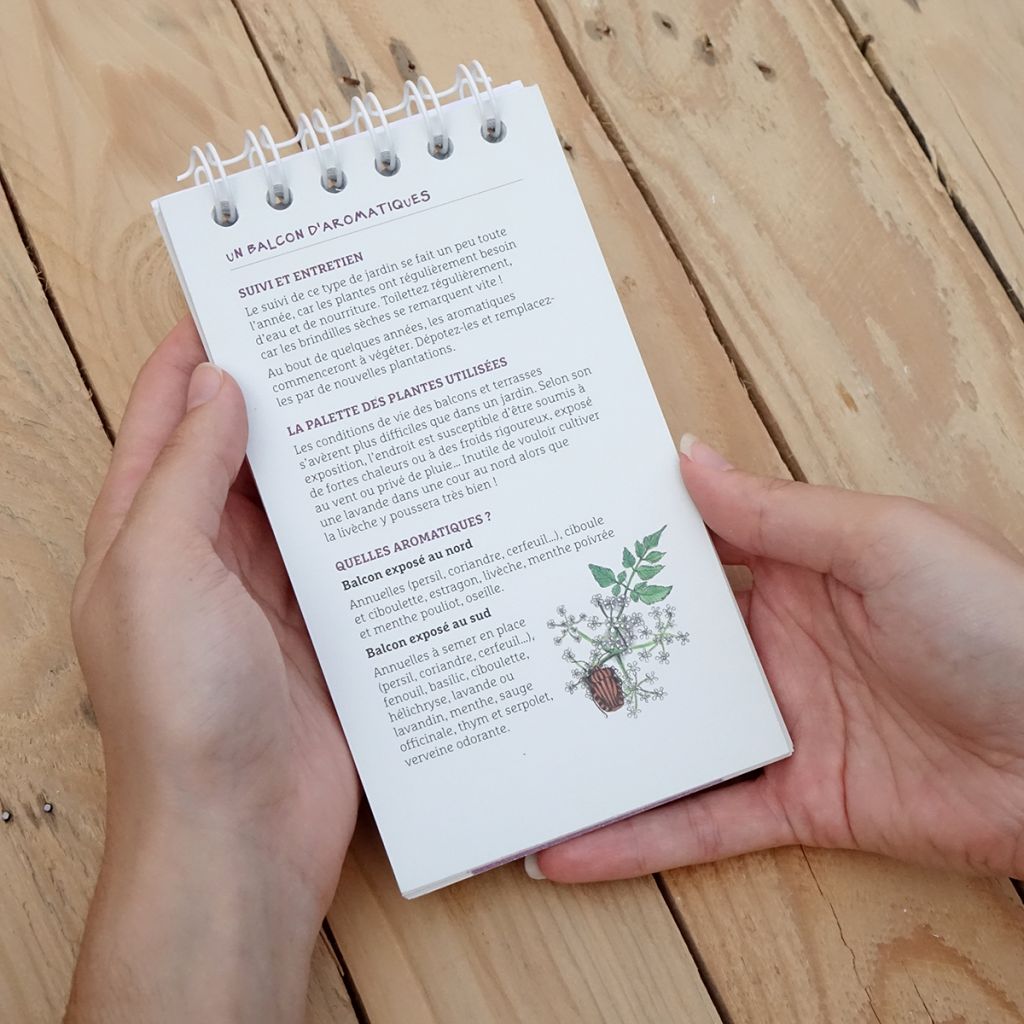 UN BALCON D'AROMATIQUES
SUIVI ET ENTRETIEN
Le suivi de ce type de jardin se fait un peu toute
l'année, car les plantes ont régulièrement besoin
d'eau et de nourriture. Toilettez régulièrement,
car les brindilles sèches se remarquent vite !
Au bout de quelques années, les aromatiques
commenceront à végéter. Dépotez-les et remplacez-
les par de nouvelles plantations.
LA PALETTE DES PLANTES UTILISÉES
Les conditions de vie des balcons et terrasses
s'avèrent plus difficiles que dans un jardin. Selon son
exposition, l'endroit est susceptible d'être soumis à
de fortes chaleurs ou à des froids rigoureux, exposé
au vent ou privé de pluie... Inutile de vouloir cultiver
une lavande dans une cour au nord alors que
la livèche y poussera très bien !
QUELLES AROMATIQUES ?
Balcon exposé au nord
Annuelles (persil, coriandre, cerfeuil...), ciboule
et ciboulette, estragon, livèche, menthe poivrée
et menthe pouliot, oseille.
Balcon exposé au sud
Annuelles à semer en place
(persil, coriandre, cerfeuil...),
fenouil, basilic, ciboulette,
hélichryse, lavande ou
lavandin, menthe, sauge
officinale, thym et serpolet,
verveine odorante.